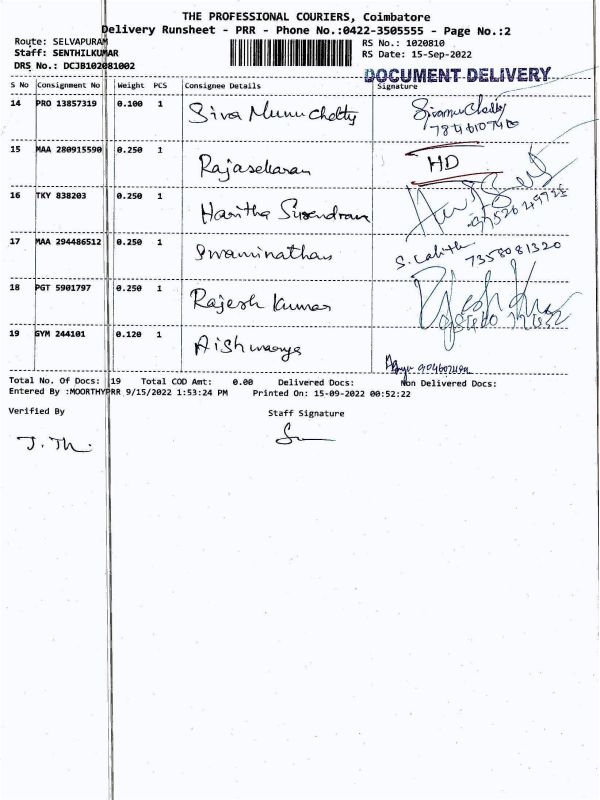 THE PROFESSIONAL COURIERS, Coimbatore
Delivery Runsheet - PRR - Phone No.:0422-3505555 - Page No.:2
Route: SELVAPURAM
RS No.: 1020810
Staff: SENTHILKUMAR
RS Date: 15-Sep-2022
DRS No.: DCJB102081002
DOCUMENT DELIVERY
S No Consignment No Weight PCS Consignee Details Signature
14 PRO 13857319 0.100 1 Siva Munu Chetty
15 MAA 280915590 0.250 1 Rajasekaran HD
16 TKY 838203 0.250 1 Haritha Surendran
17 MAA 294486512 0.250 1 Swaminathan S. Lalitha 7358081320
18 PGT 5901797 0.250 1 Rajesh Kumar
19 GYM 244101 0.120 1 Aishwarya
Total No. Of Docs: 19 Total COD Amt: 0.00 Delivered Docs: Non Delivered Docs:
Entered By :MOORTHYPRR 9/15/2022 1:53:24 PM Printed On: 15-09-2022 00:52:22
Verified By Staff Signature